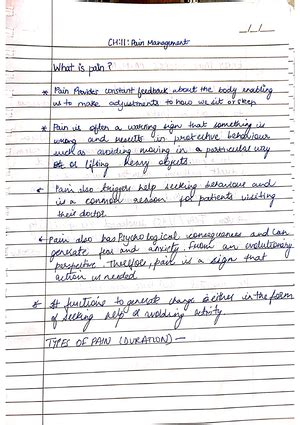 CH:11: Pain Management
What is pain?
* Pain Provides constant feedback about the body enabling
us to make adjustments to how we sit or sleep
* Pain is often a warning sign that something is
wrong and results in protective behaviour
such as avoiding moving in a particular way
or lifting heavy objects.
Pain also triggers help seeking behaviour and
is a common reason for patients visiting
their doctor
Pain also has Psychological consequences and can
generate fear and anxiety. From an evolutionary
perspective. Therefore, pain is a sign that
action is needed
* It functions to generate change either in the form
of seeking help or avoiding activity.
TYPES OF PAIN (DURATION) —